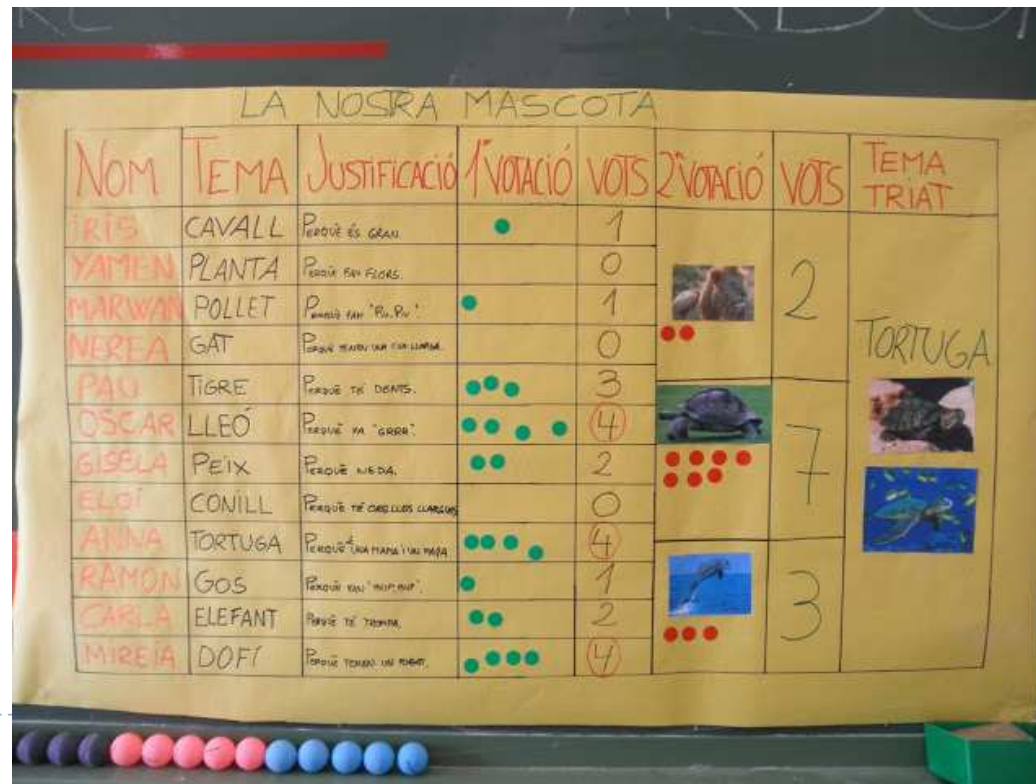 LA NOSTRA MASCOTA
NOM TEMA JUSTIFICACIÓ 1ª VOTACIÓ VOTS 2ª VOTACIÓ VOTS TEMA TRIAT
IRIS CAVALL PERQUÈ ÉS GRAN. 1
YAMEN PLANTA PERQUÈ FAN FLORS. 0
2
MARWAN POLLET PERQUÈ FAN "PIU, PIU". 1
NEREA GAT PERQUÈ TENEN UNA CUA LLARGA. 0
TORTUGA
PAU TIGRE PERQUÈ TÉ DENTS. 3
OSCAR LLEÓ PERQUÈ FA "GRRR". 4
7
GISELA PEIX PERQUÈ NEDA. 2
ELOI CONILL PERQUÈ TÉ ORELLES LLARGUES 0
ANNA TORTUGA PERQUÈ UNA MAMA I UN PAPA 4
RAMON GOS PERQUÈ FAN 1
CARLA ELEFANT PERQUÈ TÉ TROMPA. 2
3
MIREIA DOFÍ PERQUÈ TENEN UN 4